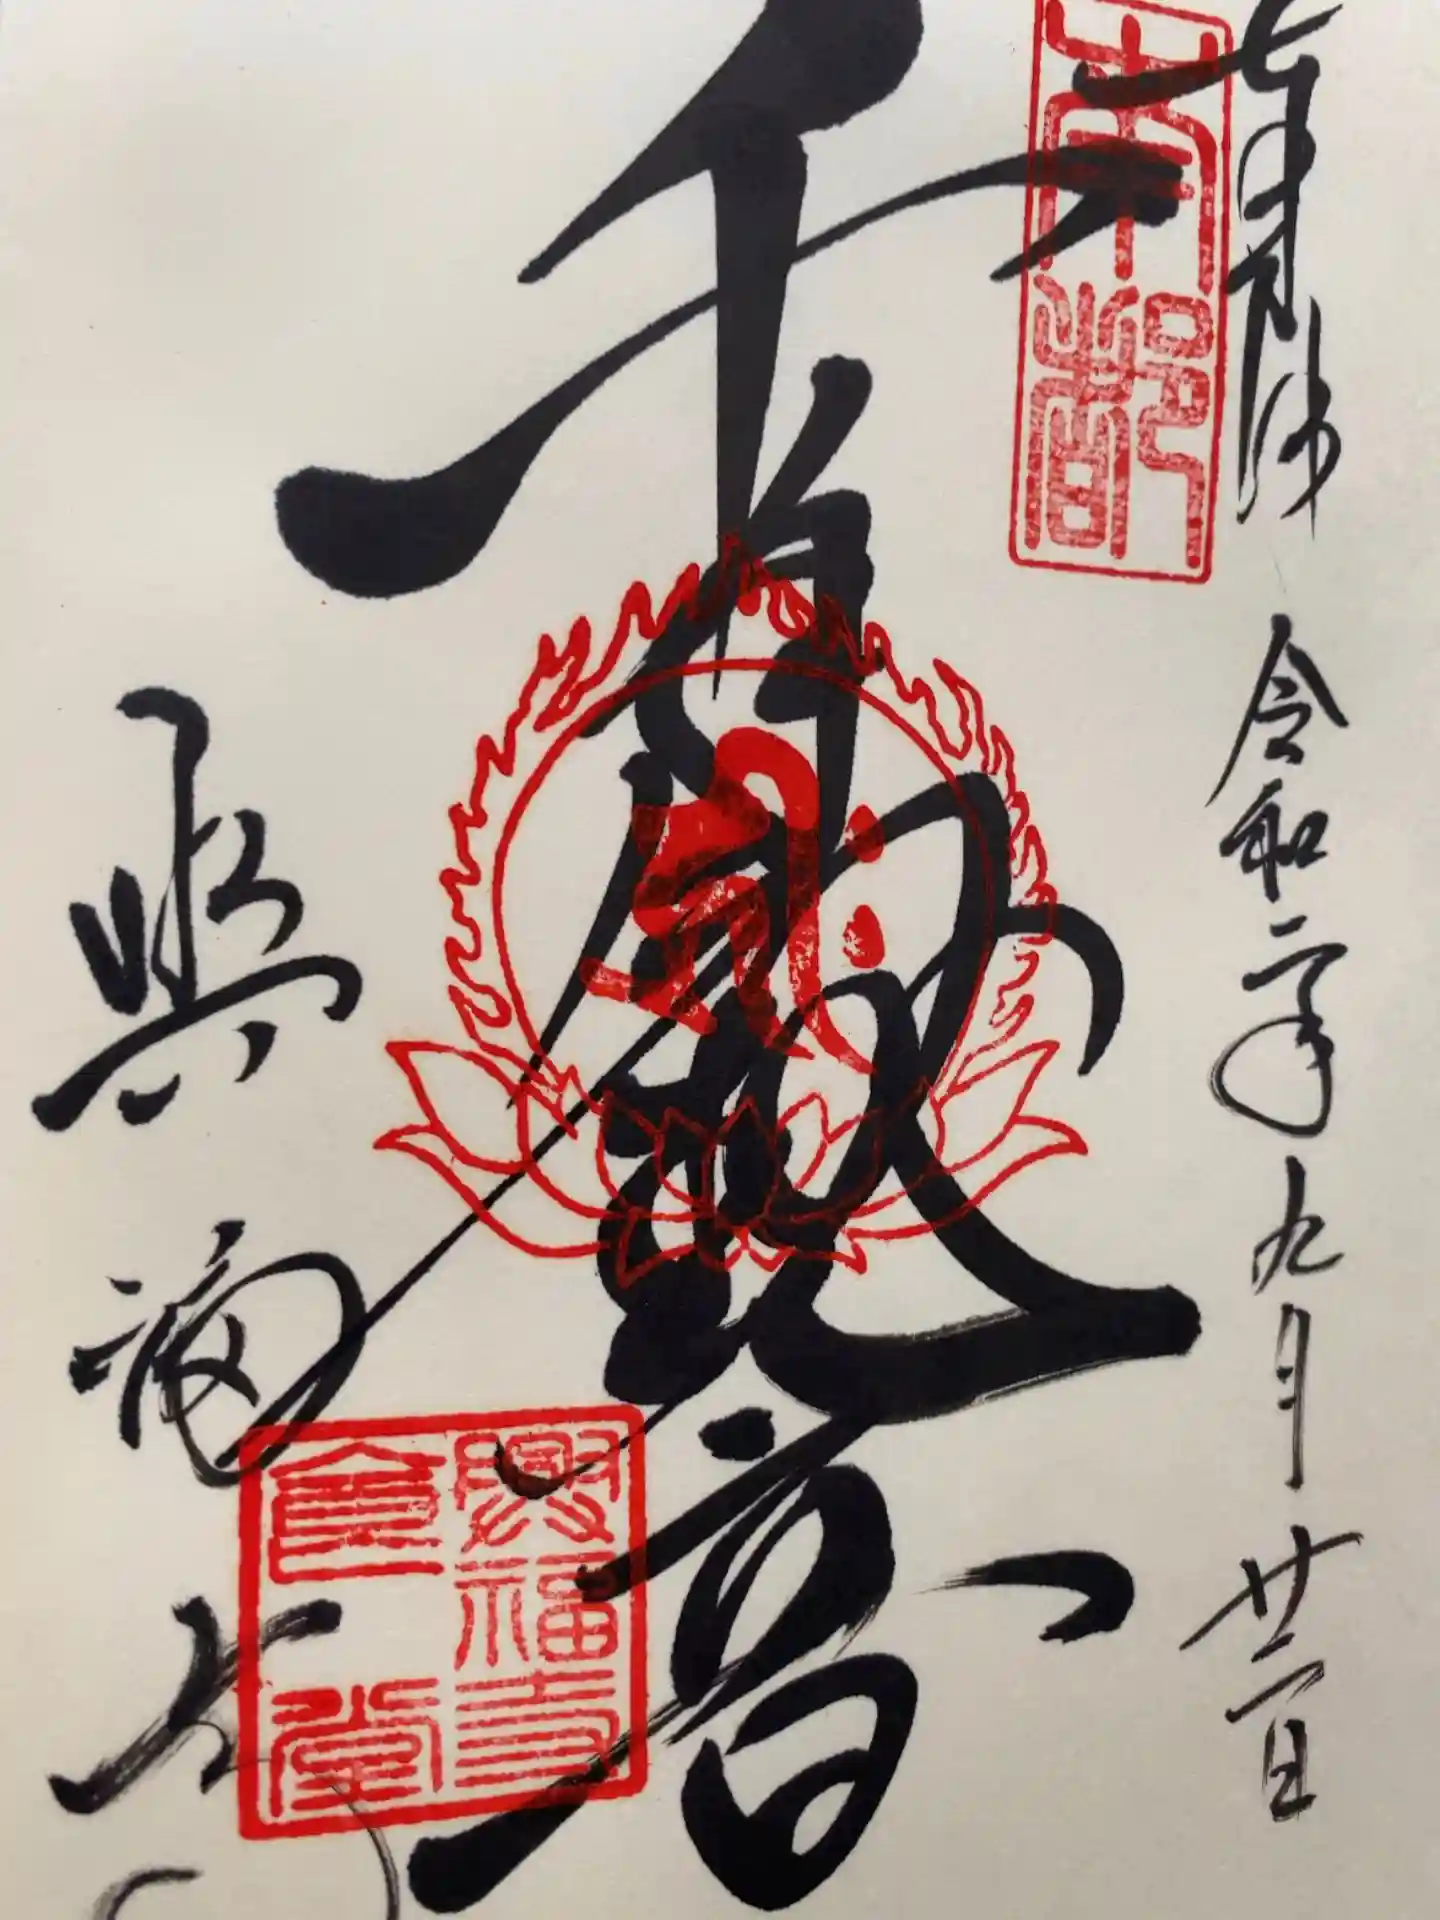 奉拝
令和二年九月廿二日
南都
千手観音
興福寺
興福寺
食堂